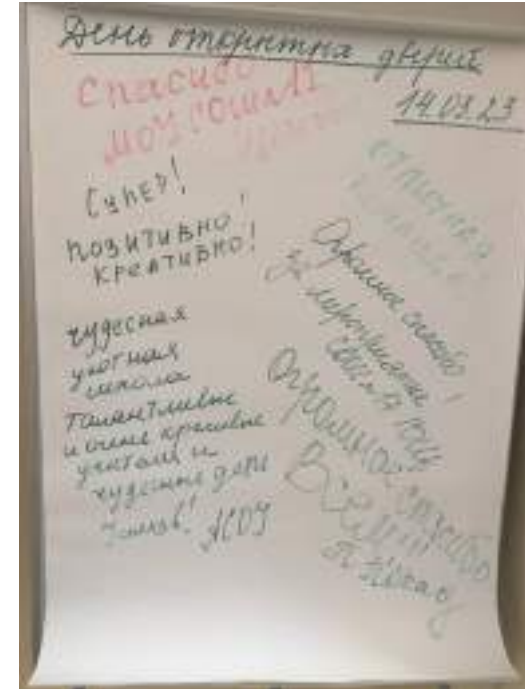 День открытых дверей
14.03.23
Спасибо
МОУ СОШ №17
Супер!
позитивно!
креативно!
чудесная
уютная
школа
талантливые
и очень красивые
учителя и
чудесные дети
АСОУ
отличная
команда
Огромное спасибо
За мероприятие
СОШ №17
Огромное спасибо
Всем!!!